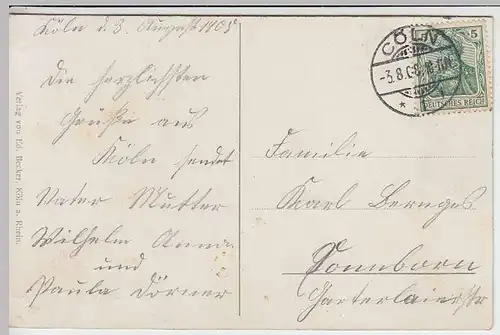 Köln d. 3. August 1905
Die herzlichsten
Grüße aus
Köln sendet
Vater Mutter
Wilhelm Anna
und
Paula Dörner
Verlag von Ed. Becker, Köln a. Rhein.
CÖLN
-3.8.0
5
DEUTSCHES REICH
Familie
Karl Bernges
Sonnborn